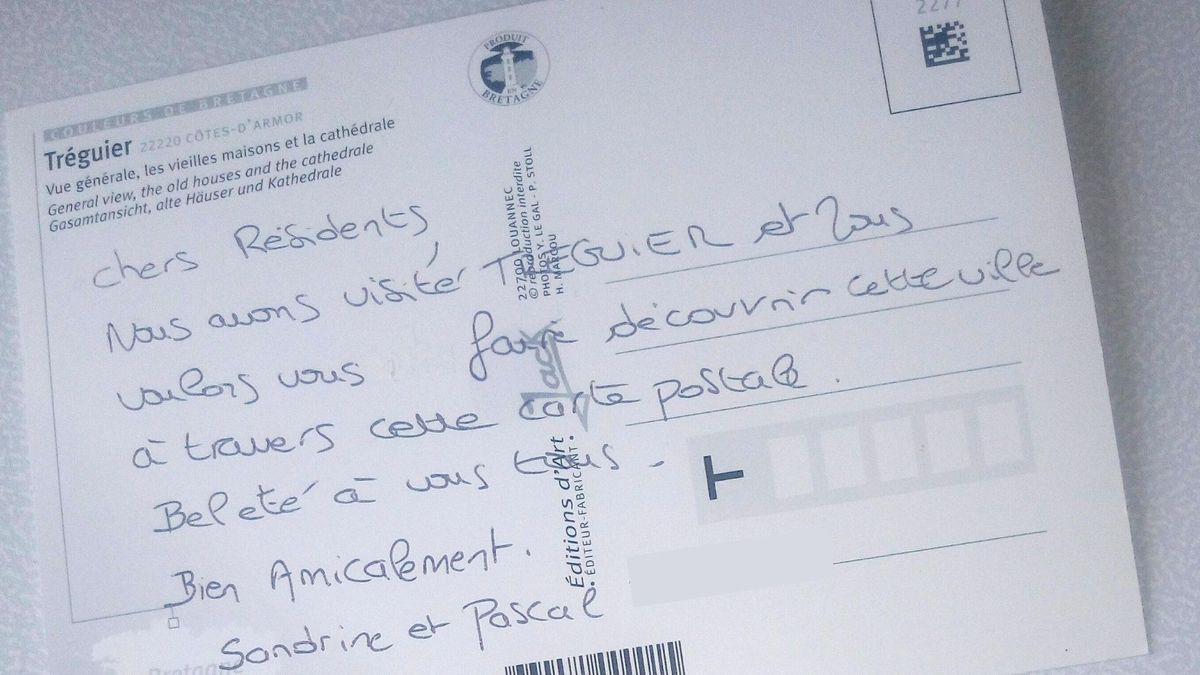 COULEURS DE BRETAGNE
Tréguier 22220 CÔTES-D'ARMOR
Vue générale, les vieilles maisons et la cathédrale
General view, the old houses and the cathedrale
Gasamtansicht, alte Häuser und Kathedrale
PRODUIT
EN
BRETAGNE
2277
chers Résidents
Nous avons visité TREGUIER et nous
voulons vous faire découvrir cette ville
à travers cette carte postale.
Bel eté à vous tous.
Bien Amicalement.
Sandrine et Pascal
22700 LOUANNEC
© reproduction interdite
PHOTOS Y. LE GAL - P. STOLL
H. MARCOU
Jack
Éditions d'Art
ÉDITEUR-FABRICANT
T
Bretagne